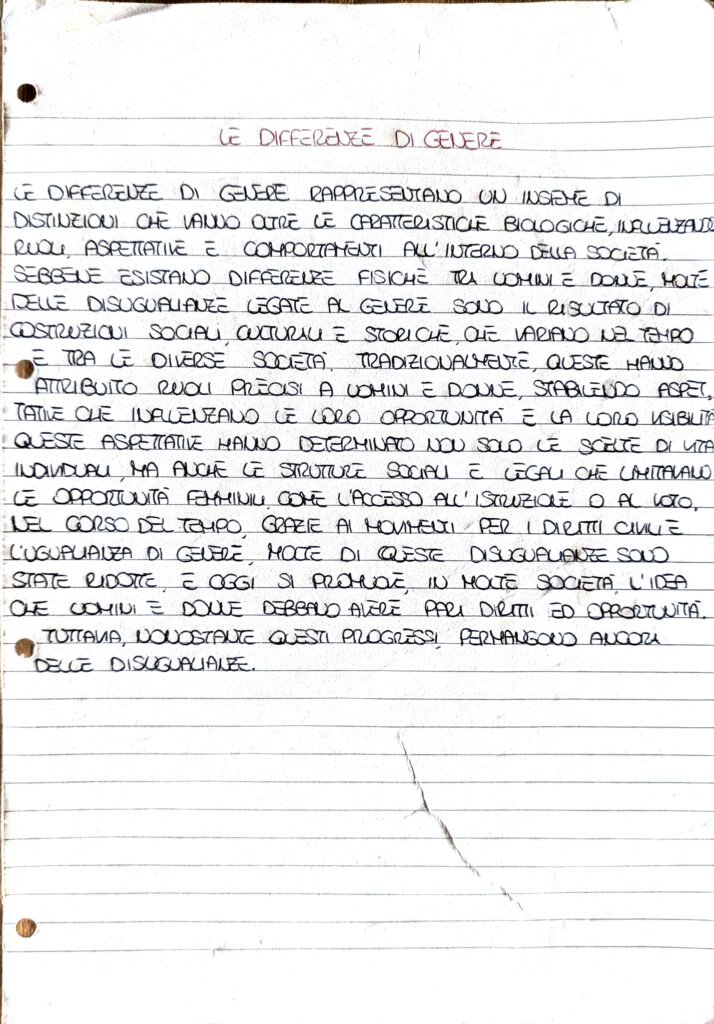 LE DIFFERENZE DI GENERE
LE DIFFERENZE DI GENERE RAPPRESENTANO UN INSIEME DI
DISTINZIONI CHE VANNO OLTRE LE CARATTERISTICHE BIOLOGICHE, INFLUENZANDO
RUOLI, ASPETTATIVE E COMPORTAMENTI ALL'INTERNO DELLA SOCIETÀ.
SEBBENE ESISTANO DIFFERENZE FISICHE TRA UOMINI E DONNE, MOLTE
DELLE DISUGUALIANZE LEGATE AL GENERE SONO IL RISULTATO DI
COSTRUZIONI SOCIALI, CULTURALI E STORICHE, CHE VARIANO NEL TEMPO
E TRA LE DIVERSE SOCIETÀ. TRADIZIONALMENTE, QUESTE HANNO
ATTRIBUITO RUOLI PRECISI A UOMINI E DONNE, STABILENDO ASPET,
TATIVE CHE INFLUENZANO LE LORO OPPORTUNITÀ E LA LORO VISIBILITÀ
QUESTE ASPETTATIVE HANNO DETERMINATO NON SOLO LE SCELTE DI VITA
INDIVIDUALI, MA ANCHE LE STRUTTURE SOCIALI E LEGALI CHE LIMITAVANO
LE OPPORTUNITÀ FEMMINILI, COME L'ACCESSO ALL'ISTRUZIONE O AL VOTO.
NEL CORSO DEL TEMPO, GRAZIE AI MOVIMENTI PER I DIRITTI CIVILI E
L'UGUALIANZA DI GENERE, MOLTE DI QUESTE DISUGUALIANZE SONO
STATE RIDOTTE, E OGGI SI PROMUOVE, IN MOLTE SOCIETÀ, L'IDEA
CHE UOMINI E DONNE DEBBANO AVERE PARI DIRITTI ED OPPORTUNITÀ.
TUTTAVIA, NONOSTANTE QUESTI PROGRESSI, PERMANGONO ANCORA
DELLE DISUGUALIANZE.